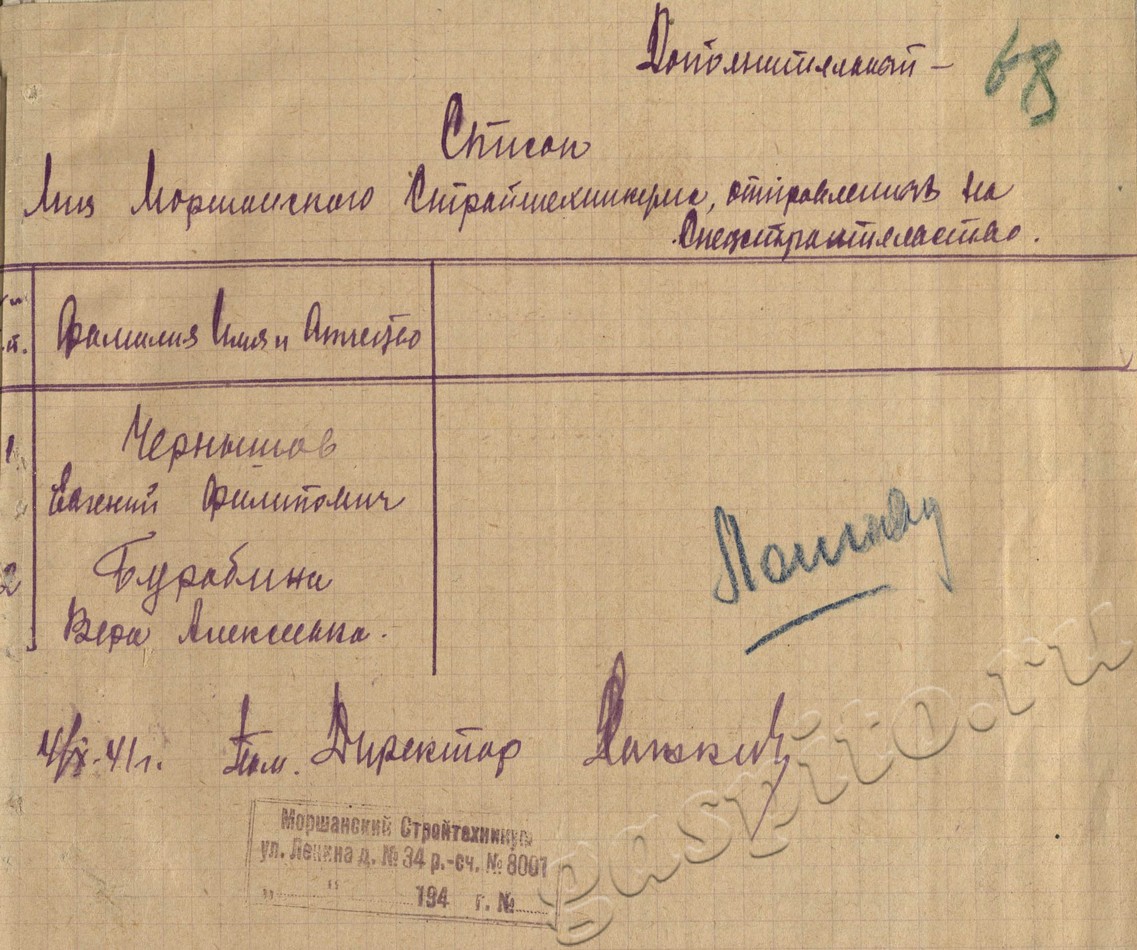 Дополнительный –
68
Список
Лиц Моршанского Стройтехникума, отправленных на
Спецстроительство.
п.
Фамилия Имя и Отчество
1
Чернышов
Евгений Филипович
2
Бураблина
Вера Алексеевна.
41 г. Пом. Директор
Моршанский Стройтехникум
ул. Ленина д. № 34 р.-сч. № 8001
„ “ 194 г. №
gaspito.ru